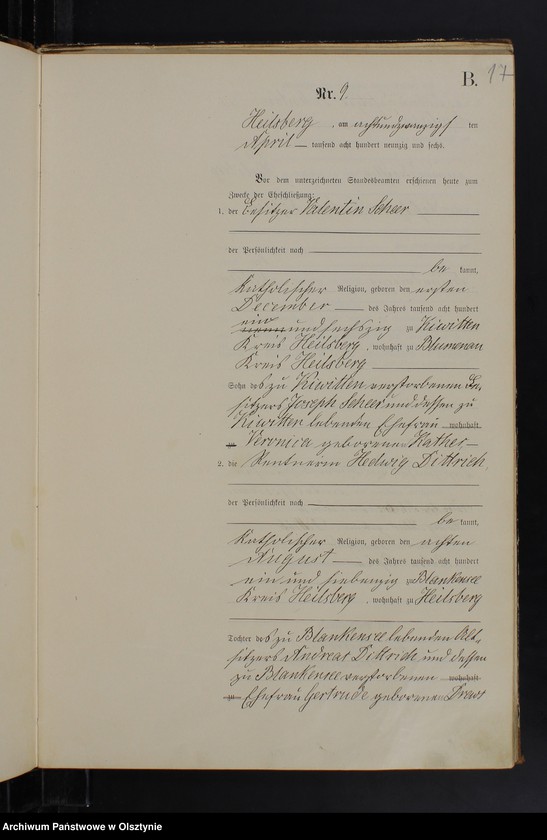 B. 17
Nr. 9
Heilsberg, am achtundzwanzigsten ten
April tausend acht hundert neunzig und sechs.
Vor dem unterzeichneten Standesbeamten erschienen heute zum
Zwecke der Eheschließung:
1. der Besitzer Valentin Scheer
der Persönlichkeit nach
be kannt,
Katholischer Religion, geboren den ersten
December des Jahres tausend acht hundert
ein
neun und sechszig zu Kiwitten
Kreis Heilsberg, wohnhaft zu Blumenau
Kreis Heilsberg
Sohn des zu Kiwitten verstorbenen Be-
sitzers Joseph Scheer und dessen zu
Kiwitten lebenden Ehefrau wohnhaft
zu Veronica geborenen Kather
2. die Rentnerin Hedwig Dittrich
der Persönlichkeit nach
be kannt,
Katholischer Religion, geboren den achten
August des Jahres tausend acht hundert
ein und siebenzig zu Blankensee
Kreis Heilsberg, wohnhaft zu Heilsberg
Tochter des zu Blankensee lebenden Alt-
sitzers Andreas Dittrich und dessen
zu Blankensee verstorbenen wohnhaft
zu Ehefrau Gertrude geborenen Draws
Archiwum Państwowe w Olsztynie